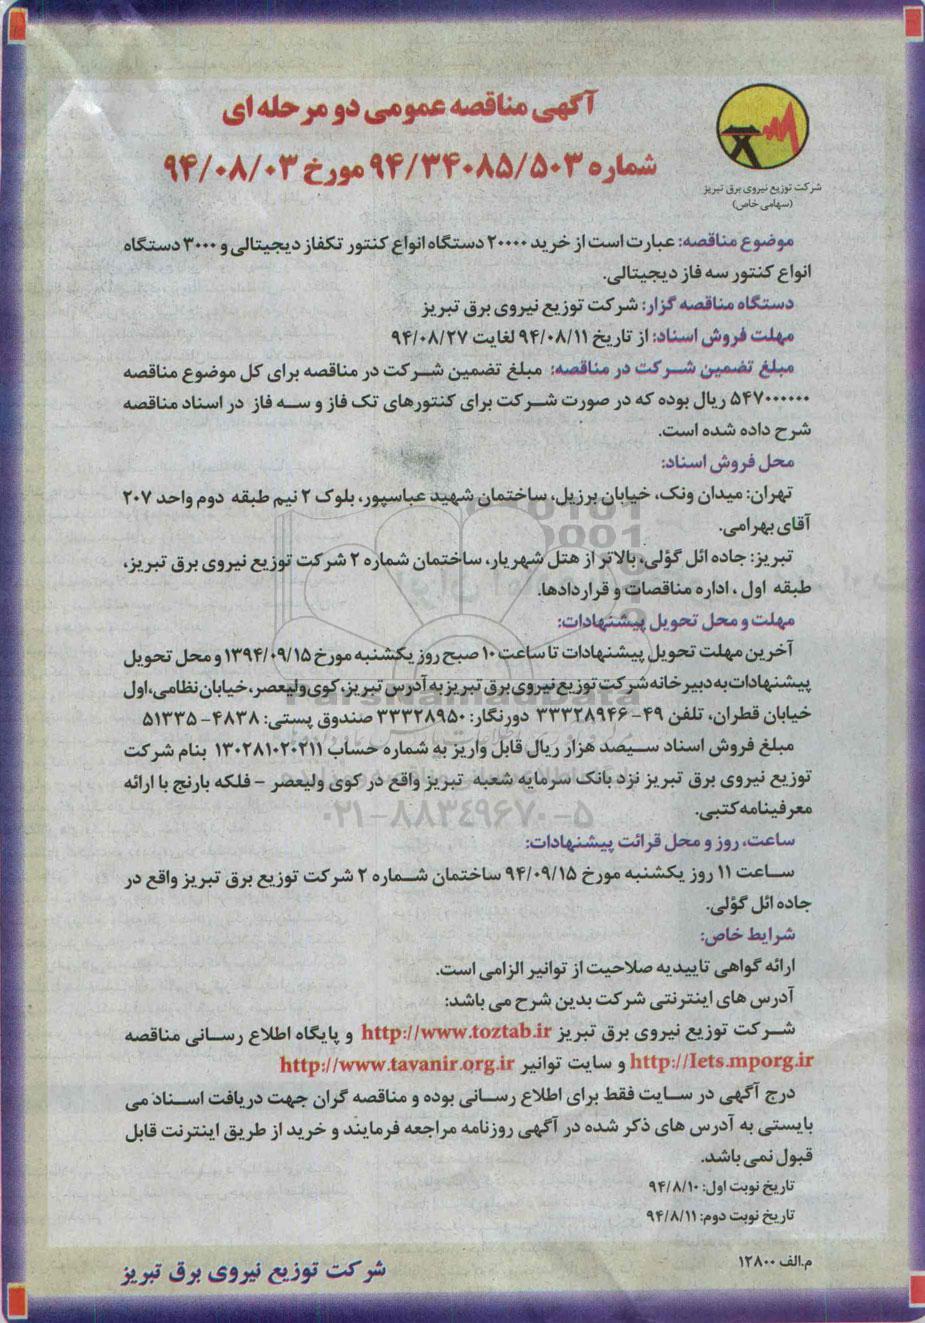 آگهی مناقصه عمومی دو مرحله ای
شماره ۹۴/۳۴۰۸۵/۵۰۳ مورخ ۹۴/۰۸/۰۳
شرکت توزیع نیروی برق تبریز
(سهامی خاص)
موضوع مناقصه: عبارت است از خرید ۲۰۰۰۰ دستگاه انواع کنتور تکفاز دیجیتالی و ۳۰۰۰ دستگاه
انواع کنتور سه فاز دیجیتالی.
دستگاه مناقصه گزار: شرکت توزیع نیروی برق تبریز
مهلت فروش اسناد: از تاریخ ۹۴/۰۸/۱۱ لغایت ۹۴/۰۸/۲۷
مبلغ تضمین شرکت در مناقصه: مبلغ تضمین شرکت در مناقصه برای کل موضوع مناقصه
۵۴۷۰۰۰۰۰۰ ریال بوده که در صورت شرکت برای کنتورهای تک فاز و سه فاز در اسناد مناقصه
شرح داده شده است.
محل فروش اسناد:
تهران: میدان ونک، خیابان برزیل، ساختمان شهید عباسپور، بلوک ۲ نیم طبقه دوم واحد ۲۰۷
آقای بهرامی.
تبریز: جاده ائل گؤلی، بالاتر از هتل شهریار، ساختمان شماره ۲ شرکت توزیع نیروی برق تبریز،
طبقه اول ، اداره مناقصات و قراردادها.
مهلت و محل تحویل پیشنهادات:
آخرین مهلت تحویل پیشنهادات تا ساعت ۱۰ صبح روز یکشنبه مورخ ۱۳۹۴/۰۹/۱۵ و محل تحویل
پیشنهادات به دبیرخانه شرکت توزیع نیروی برق تبریز به آدرس تبریز، کوی ولیعصر، خیابان نظامی، اول
خیابان قطران، تلفن ۴۹-۳۳۳۲۸۹۴۶ دورنگار: ۳۳۳۲۸۹۵۰ صندوق پستی: ۴۸۳۸-۵۱۳۳۵
مبلغ فروش اسناد سیصد هزار ریال قابل واریز به شماره حساب ۱۳۰۲۸۱۰۲۰۲۱۱ بنام شرکت
توزیع نیروی برق تبریز نزد بانک سرمایه شعبه تبریز واقع در کوی ولیعصر - فلکه بارنج با ارائه
معرفینامه کتبی.
۰۲۱-۸۸۳۴۹۶۷۰-۵
ساعت، روز و محل قرائت پیشنهادات:
ساعت ۱۱ روز یکشنبه مورخ ۹۴/۰۹/۱۵ ساختمان شماره ۲ شرکت توزیع برق تبریز واقع در
جاده ائل گؤلی.
شرایط خاص:
ارائه گواهی تاییدیه صلاحیت از توانیر الزامی است.
آدرس های اینترنتی شرکت بدین شرح می باشد:
شرکت توزیع نیروی برق تبریز http://www.toztab.ir و پایگاه اطلاع رسانی مناقصه
http://Iets.mporg.ir و سایت توانیر http://www.tavanir.org.ir
درج آگهی در سایت فقط برای اطلاع رسانی بوده و مناقصه گران جهت دریافت اسناد می
بایستی به آدرس های ذکر شده در آگهی روزنامه مراجعه فرمایند و خرید از طریق اینترنت قابل
قبول نمی باشد.
تاریخ نوبت اول: ۹۴/۸/۱۰
تاریخ نوبت دوم: ۹۴/۸/۱۱
م.الف ۱۲۸۰۰
شرکت توزیع نیروی برق تبریز